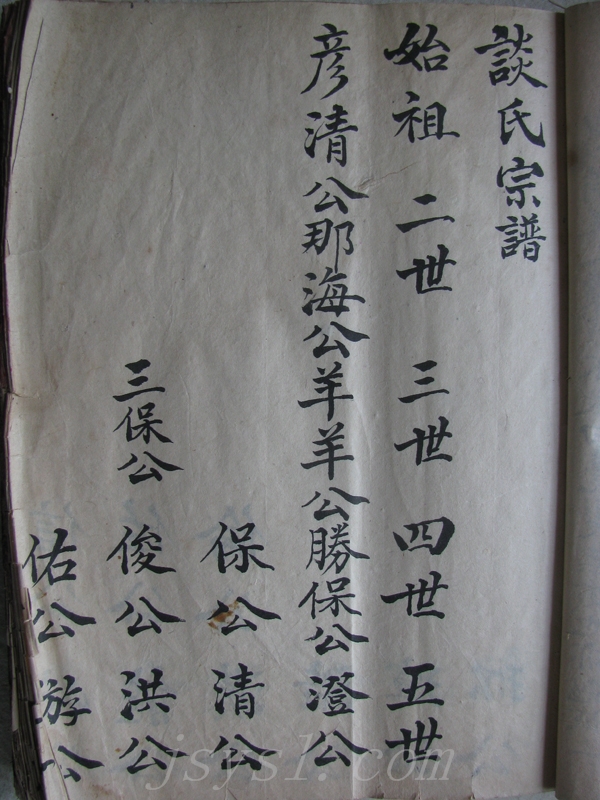 談氏宗譜
始祖 二世 三世 四世 五世
彦清公那海公羊羊公勝保公澄公
保公清公
三保公俊公洪公
佑公游公
jsysl.com